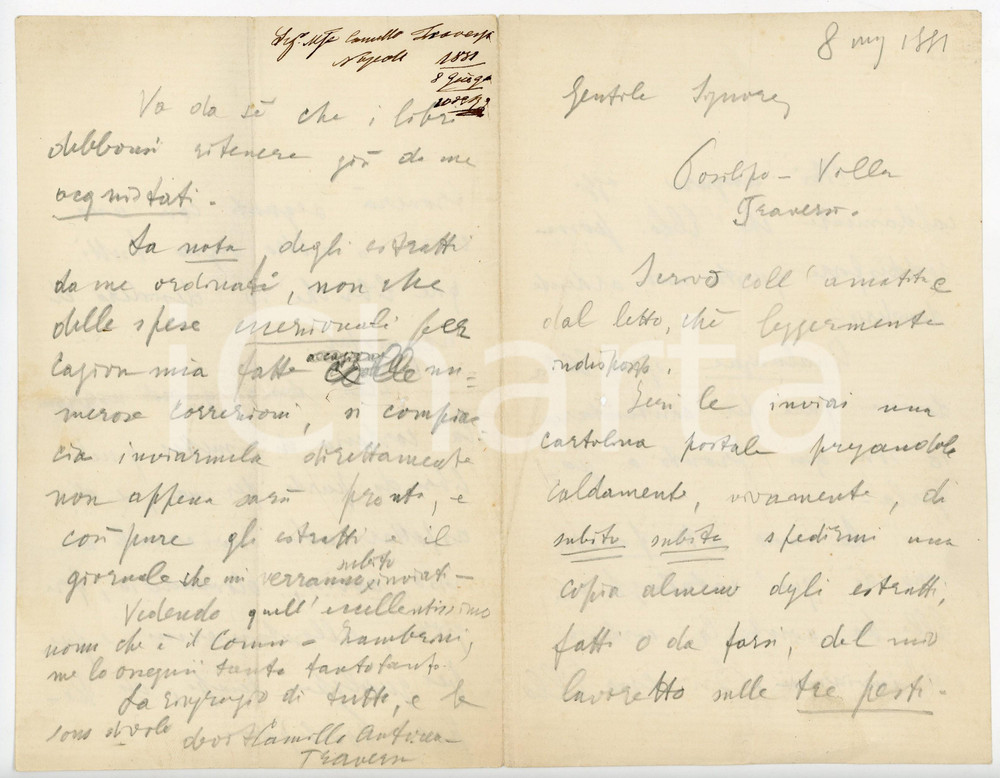 8 mag 1881
Gentile Signore,
Posilipo - Villa
Traversi.
Scrivo coll'amatita e
dal letto, chè leggermente
indisposto.
Ieri le inviai una
cartolina postale pregandola
caldamente, vivamente, di
subito subito spedirmi una
copia almeno degli estratti,
fatti o da farsi, del mio
lavoretto sulle tre pesti.
Camillo Traversi
Napoli 1881
8
Va da sè che i libri
debbonsi ritenere già da me
acquistati.
La nota degli estratti
da me ordinati, non che
delle spese eccezionali per
cagion mia fatte delle nu=
merose correzioni, si compiac
cia inviarmela direttamente
non appena sarà pronta, e
così pure gli estratti e il
giornale che mi verranno subito inviati -
Vedendo quell'eccellentissimo
uomo che è il Comm. Zambrini,
me lo ossequii tanto tanto tanto.
La ringrazio di tutto, e le
sono devot Camillo Antona-
Traversi
iCharta